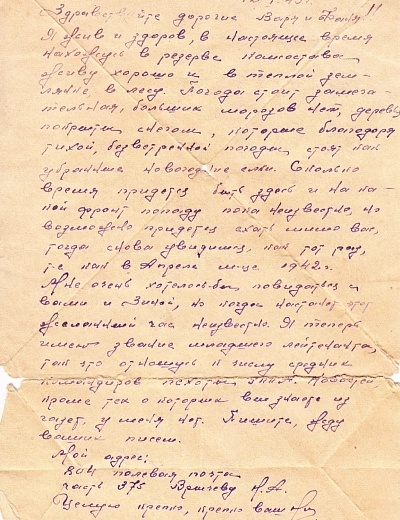 Здравствуйте дорогие Варя и Таня!!
Я жив и здоров, в настоящее время
нахожусь в резерве комсостава
живу хорошо и в теплой зем-
лянке в лесу. Погода стоит замеча-
тельная, больших морозов нет, деревья
покрыты снегом, которые благодаря
тихой, безветренной погоды, стоят как
убранные новогодние елки. Сколько
время придется быть здесь и на ка-
кой фронт попаду пока неизвестно, но
возможно придется ехать мимо вас,
тогда снова увидимся, как тот раз,
т.е как в Апреле м-це 1942 г.
Мне очень хотелось-бы повидаться с
вами и Зиной, но когда настанет этот
желанный час неизвестно. Я теперь
имею звание младшего лейтенанта,
так что отношусь к числу средних
командиров пехоты Новостей
кроме тех о которых вы знаете из
газет, у меня нет. Пишите, жду
ваших писем.
Мой адрес:
полевая почта
часть 375
Целую крепко, крепко ваш